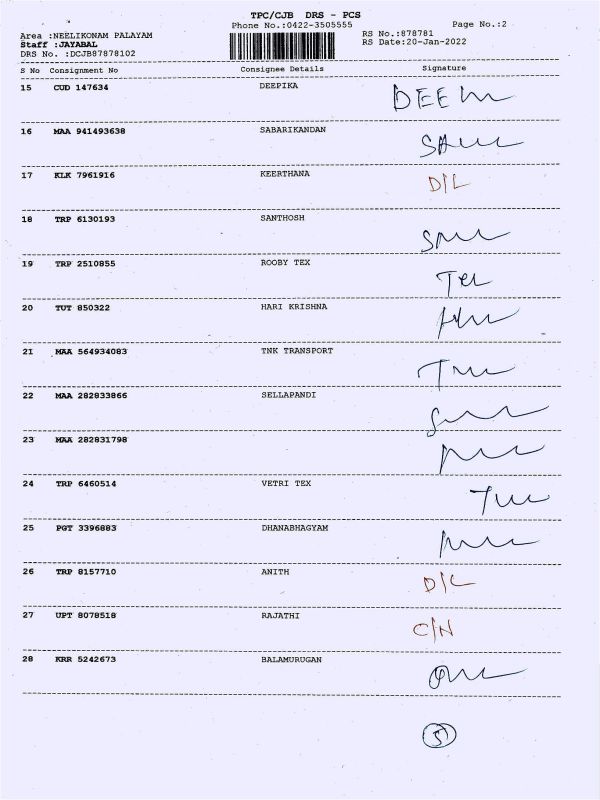 TPC/CJB DRS - PCS
Phone No.:0422-3505555 Page No.:2
Area :NEELIKONAM PALAYAM RS No.:878781
Staff :JAYABAL RS Date:20-Jan-2022
DRS No. :DCJB87878102
S No Consignment No Consignee Details Signature
15 CUD 147634 DEEPIKA
16 MAA 941493638 SABARIKANDAN
17 KLK 7961916 KEERTHANA D/L
18 TRP 6130193 SANTHOSH
19 TRP 2510855 ROOBY TEX
20 TUT 850322 HARI KRISHNA
21 MAA 564934083 TNK TRANSPORT
22 MAA 282833866 SELLAPANDI
23 MAA 282831798
24 TRP 6460514 VETRI TEX
25 PGT 3396883 DHANABHAGYAM
26 TRP 8157710 ANITH D/L
27 UPT 8078518 RAJATHI C/N
28 KRR 5242673 BALAMURUGAN
5